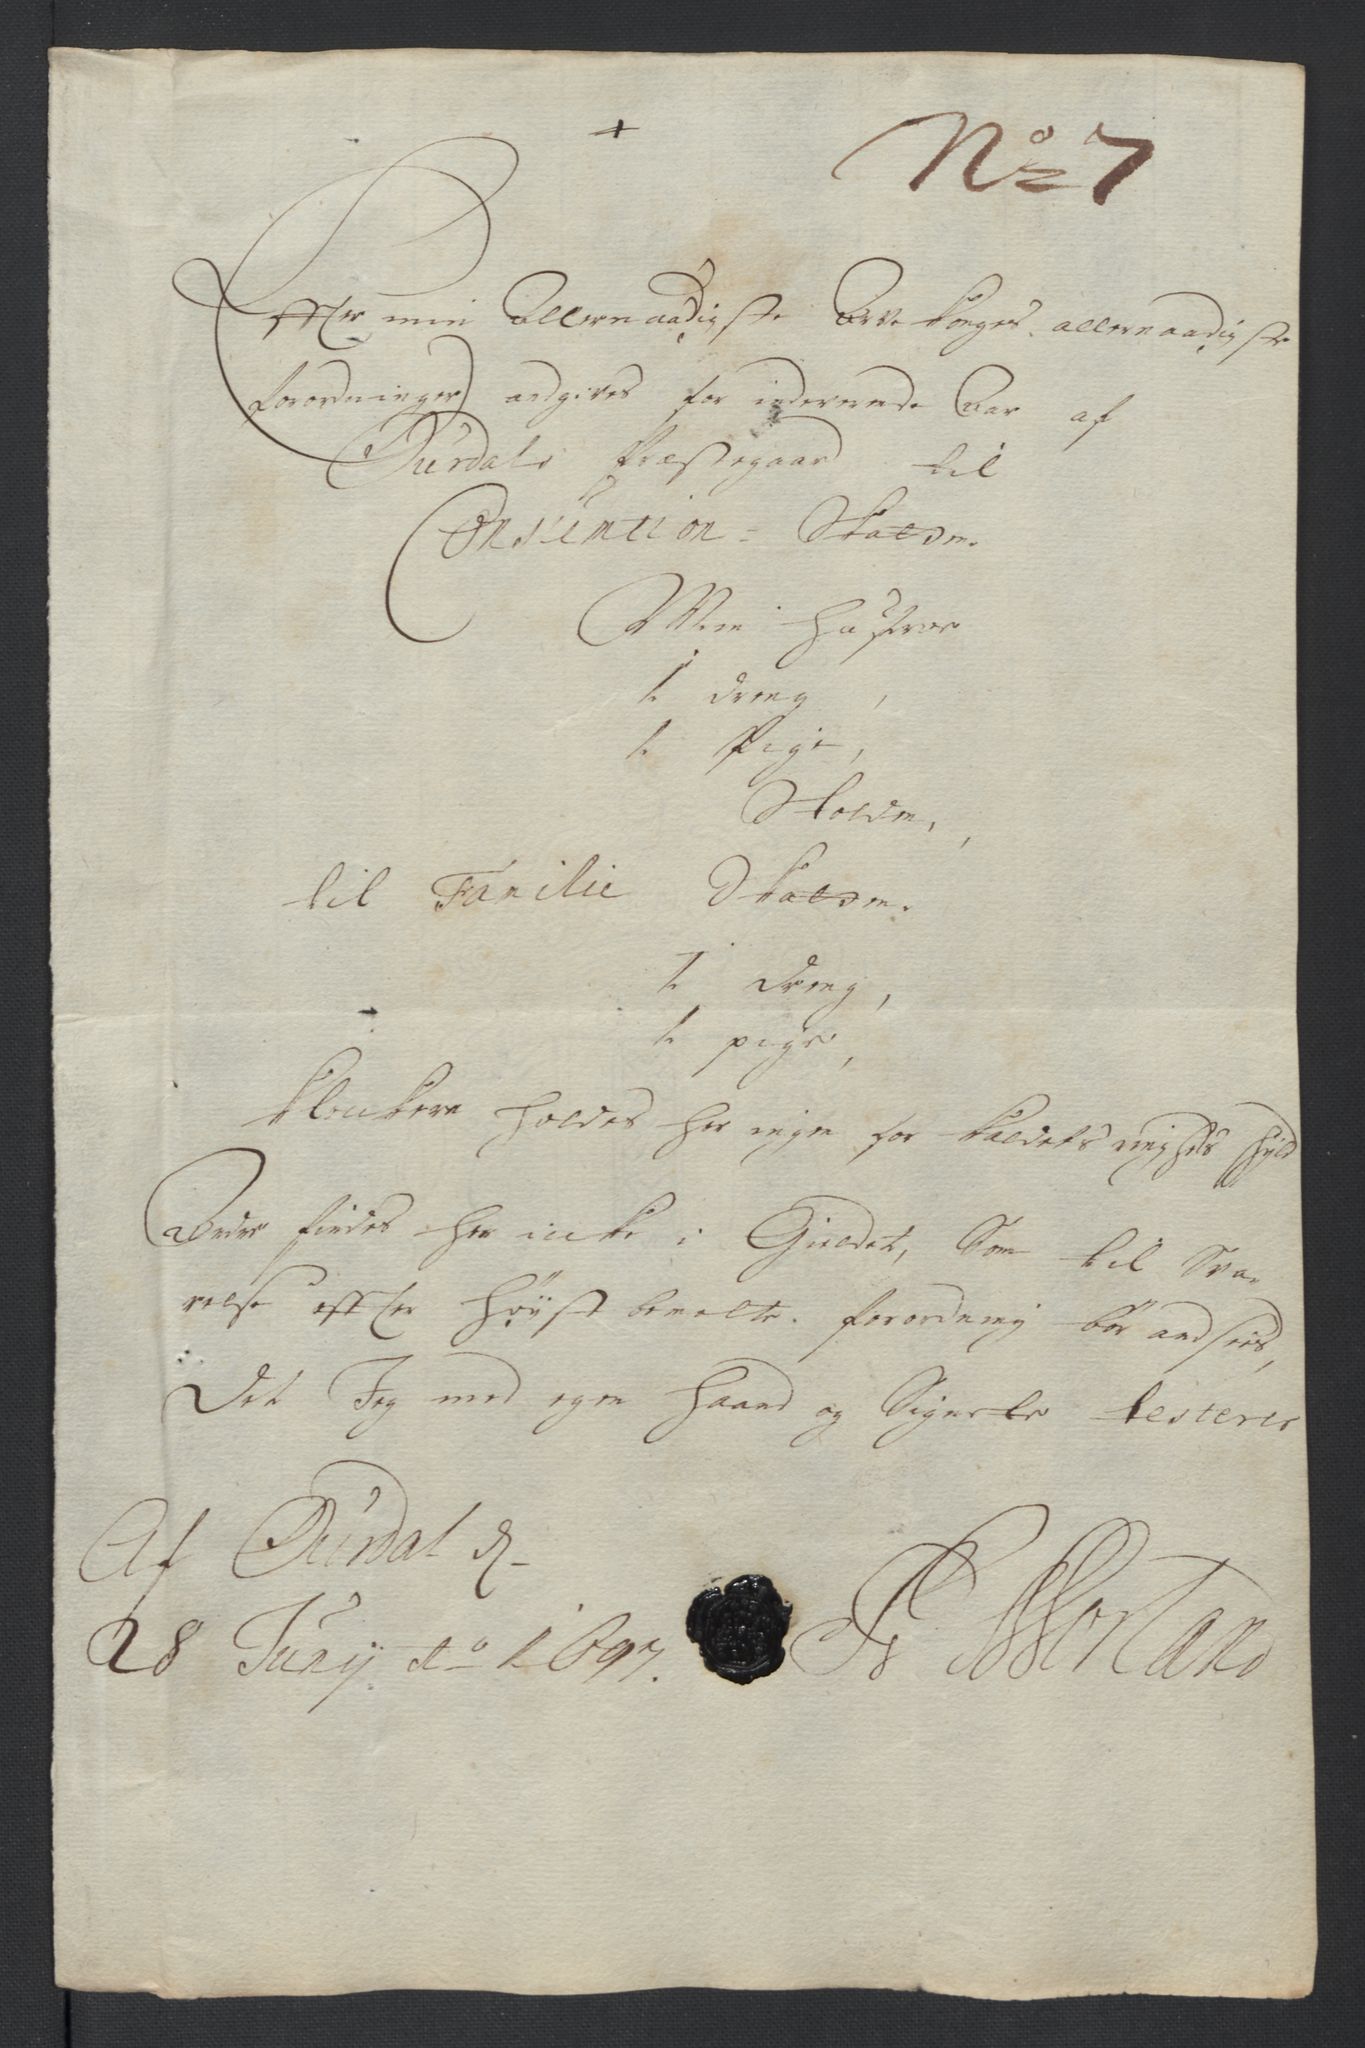 No 7
Effter min Allernaadigste Arve Konges allernaadigste
forordninger, andgives for inderverende Aar af
Aurdals Præstegaard til
Consumtion = Skatten.
Min hustroe
1 dreng,
1 Pige,
Skatten,
til Familie Skatten.
1 dreng,
1 pige,
Klockere holdes her ingen for Kaldets ringheds skyld
Andre findes her icke i Gieldet, Som til Sva
relse effter høyst bemelte forordning bør andsees,
Det Jeg med egen haand og Signete testerer
Af Aurdal d
28 Junij Ao 1697.